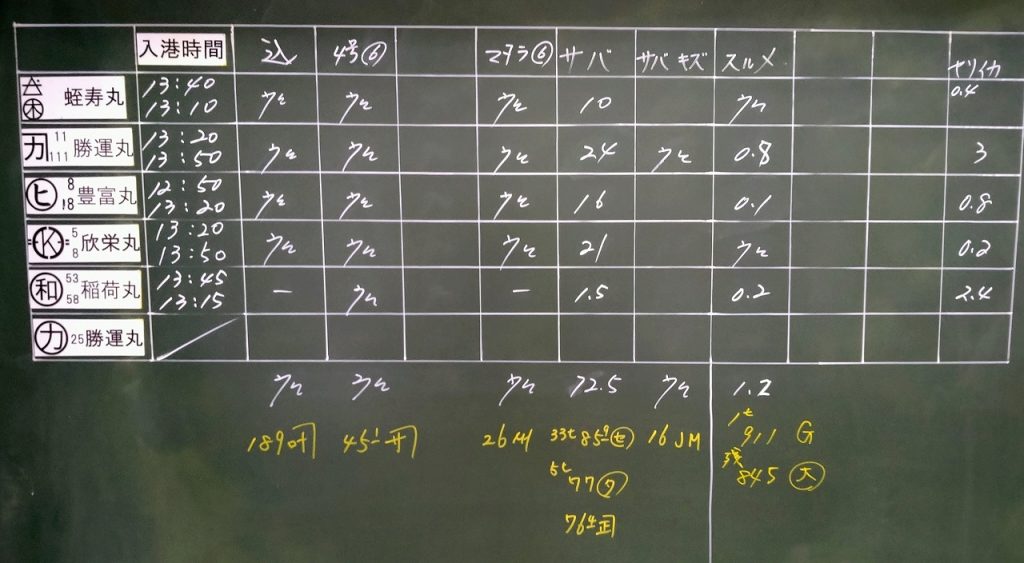 入港時間 込 4号⑥ マダラ⑥ サバ サバキズ スルメ ヤリイカ
11 蛭寿丸 13:40 13:10 ウヒ ウヒ ウヒ 10 ウヒ 0.4
カ 11 111 勝運丸 13:20 13:50 ウヒ ウヒ ウヒ 24 ウヒ 0.8 3
ヒ 8 18 豊富丸 12:50 13:20 ウヒ ウヒ ウヒ 16 0.1 0.8
K 5 8 欣栄丸 13:20 13:50 ウヒ ウヒ ウヒ 21 ウヒ 0.2
和 53 58 稲荷丸 13:45 13:15 — ウヒ — 1.5 0.2 2.4
力 25 勝運丸
ウヒ ウヒ ウヒ 72.5 ウヒ 1.2
189 45 26 33t 85 16 JM 1t 911 G
5t 77 残 845 大
76